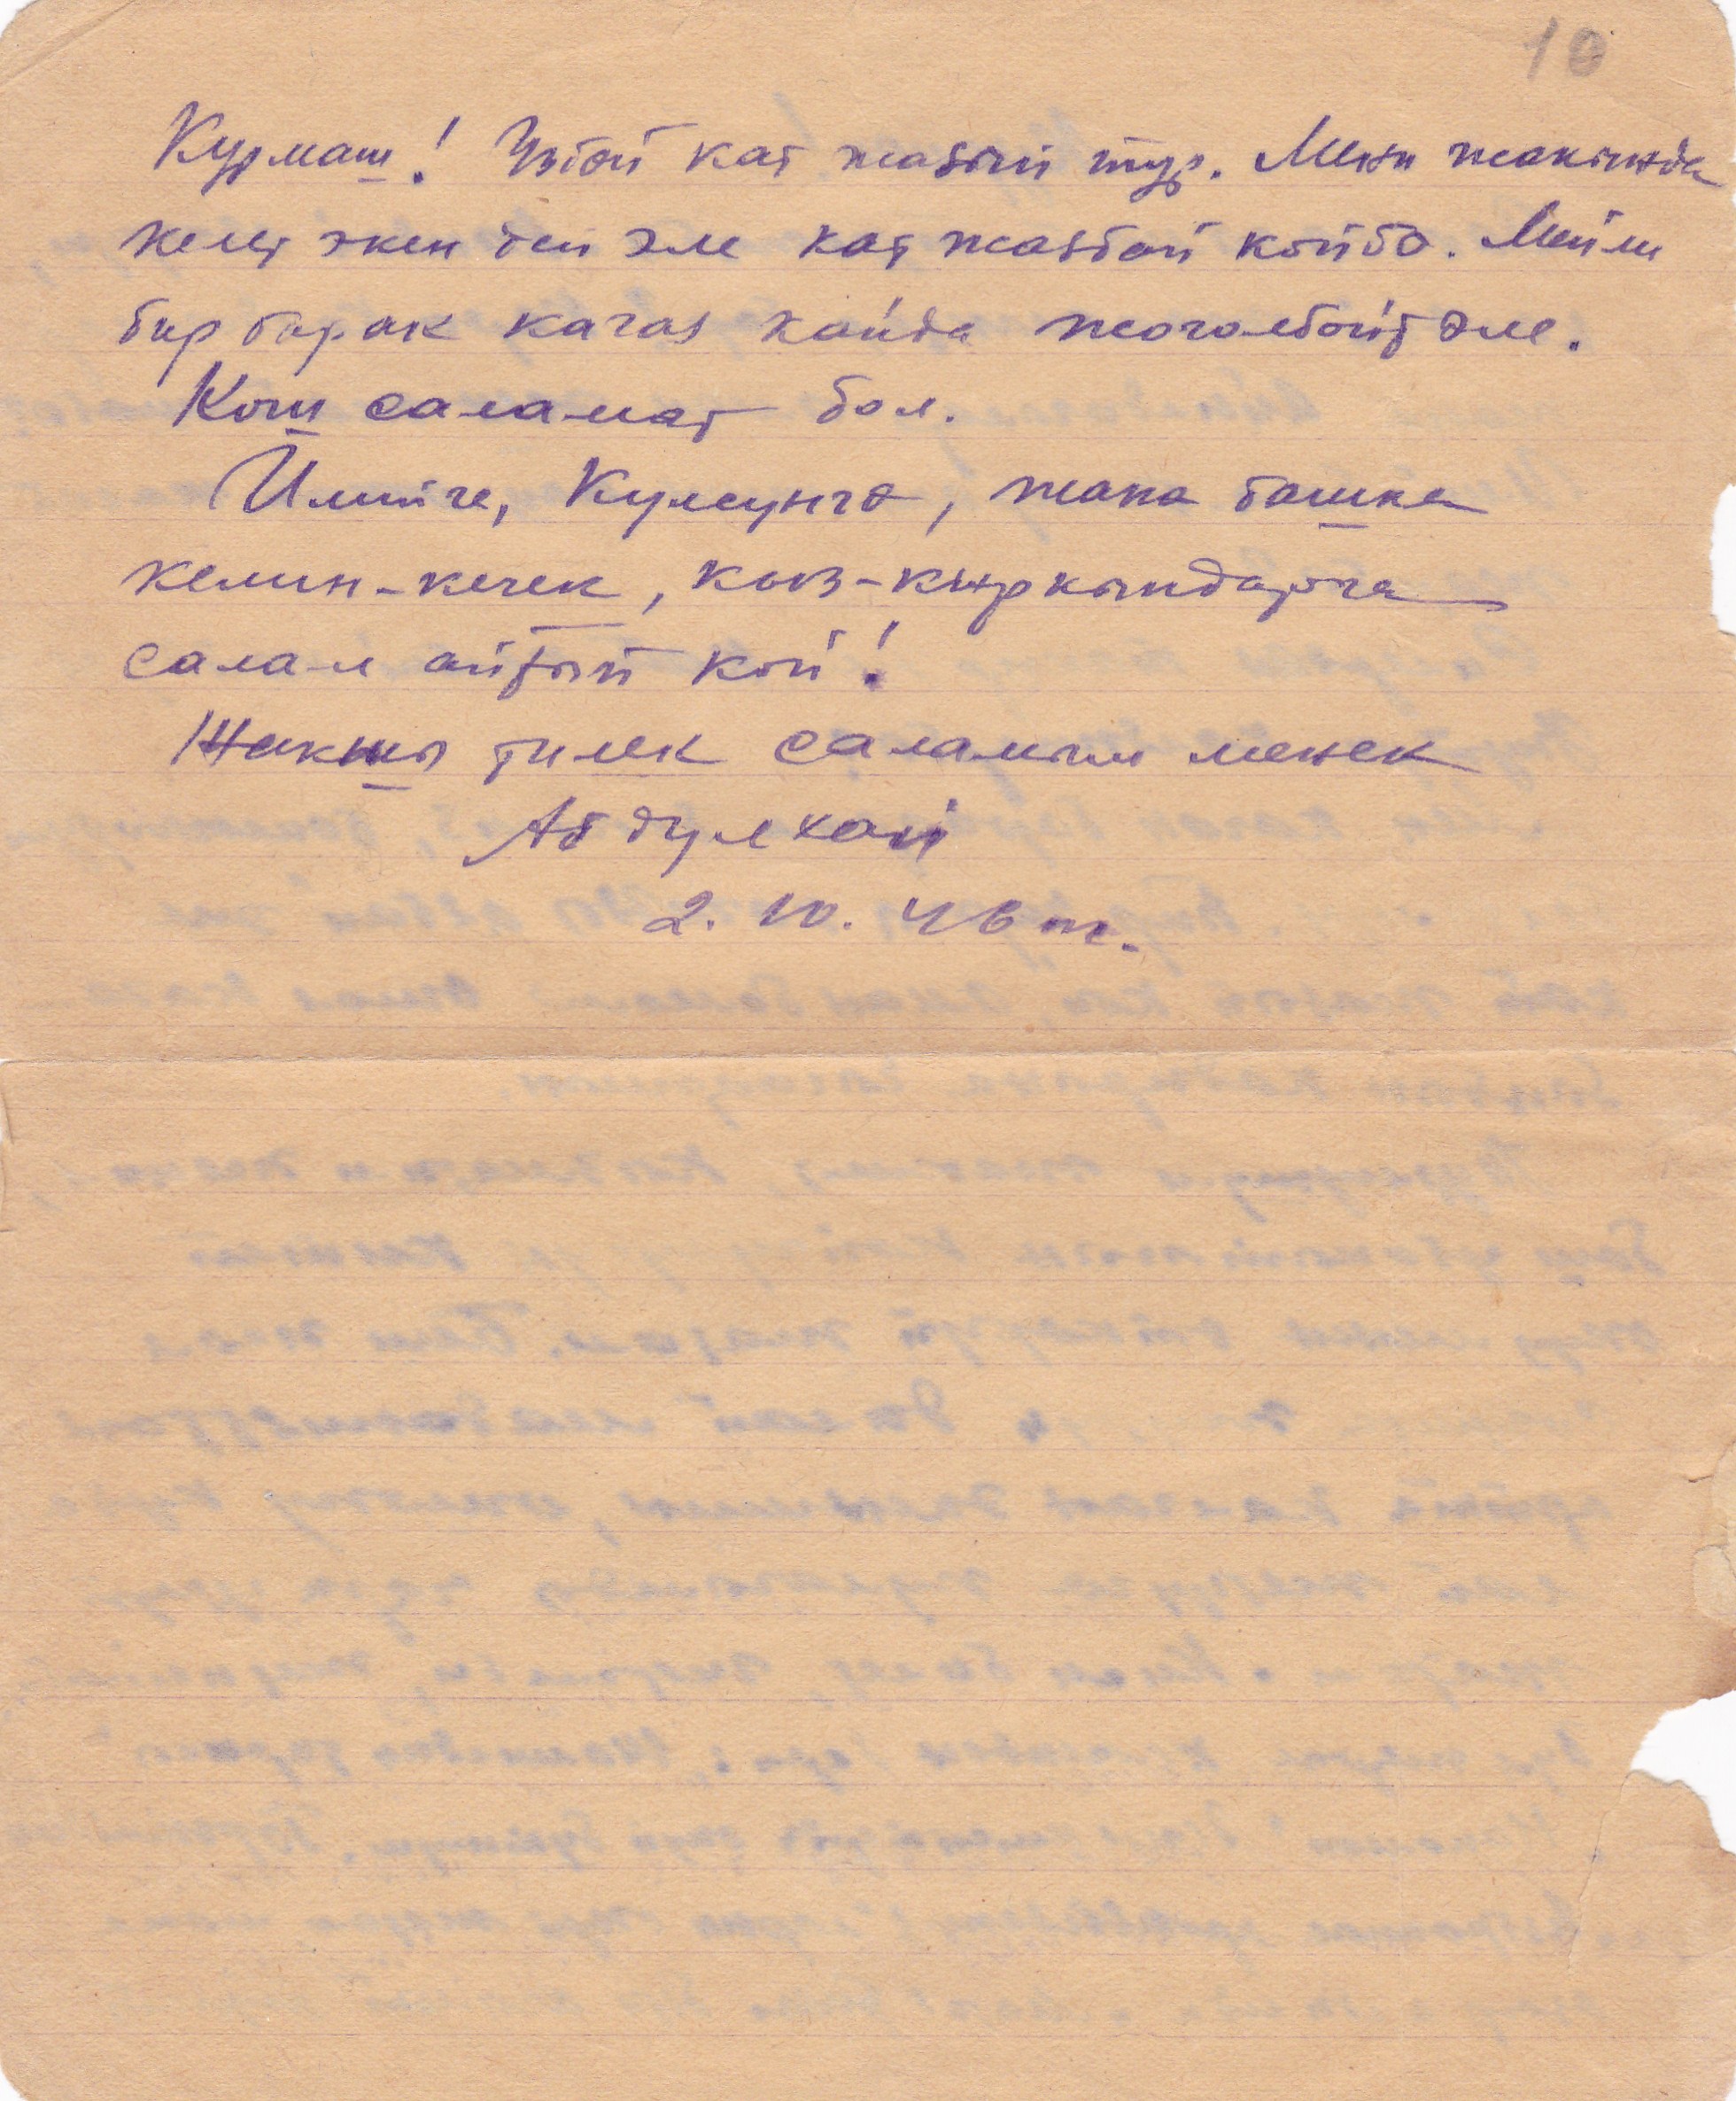 10
Курмаш! Үзбөй кат жазып тур. Мени жакында
келет экен деп эле кат жазбай койбо. Мейли
бир барак кагаз кайда жоголбойт эле.
Кош саламат бол.
Кулсунга, жана башка
келин-кечек, кыз-кыркындарга
салам айтып кой!
Жакшы тилек саламым менен
Абдулхай
2. 10. 46 ж.